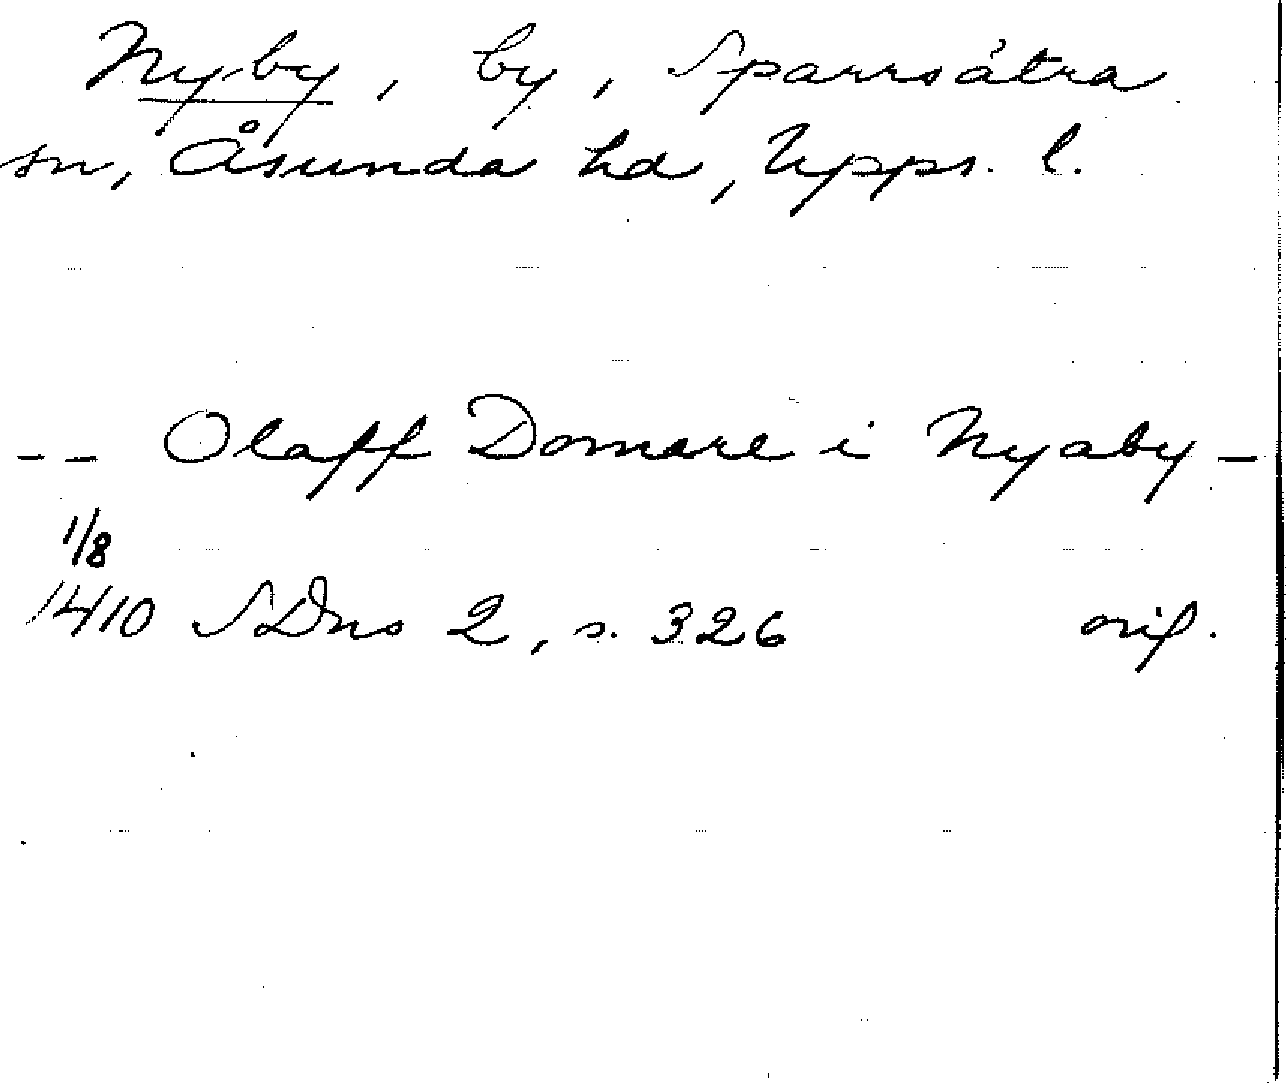 Nyby, by, Sparrsåtra
sn, Åsunda hd, Upps. l.
-- Olaff Domare i Nyaby -
1/8
1410 SDns 2, s. 326 orig.